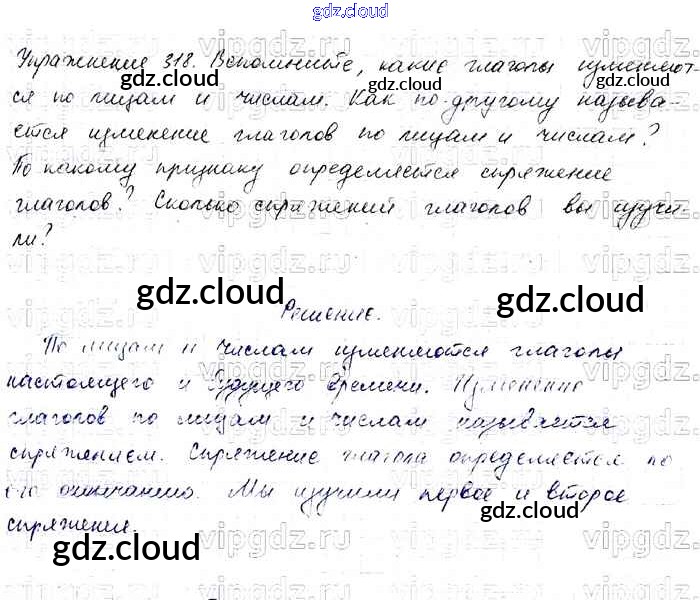 gdz.cloud
Упражнение 318. Вспомните, какие глаголы изменяют-
ся по лицам и числам. Как по-другому называ-
ется изменение глаголов по лицам и числам?
По какому признаку определяется спряжение
глаголов? Сколько спряжений глаголов вы изучи
ли?
Решение.
По лицам и числам изменяются глаголы
настоящего и будущего времени. Изменение
глаголов по лицам и числам называется
спряжением. Спряжение глагола определяется по
его окончанию. Мы изучили первое и второе
спряжения.